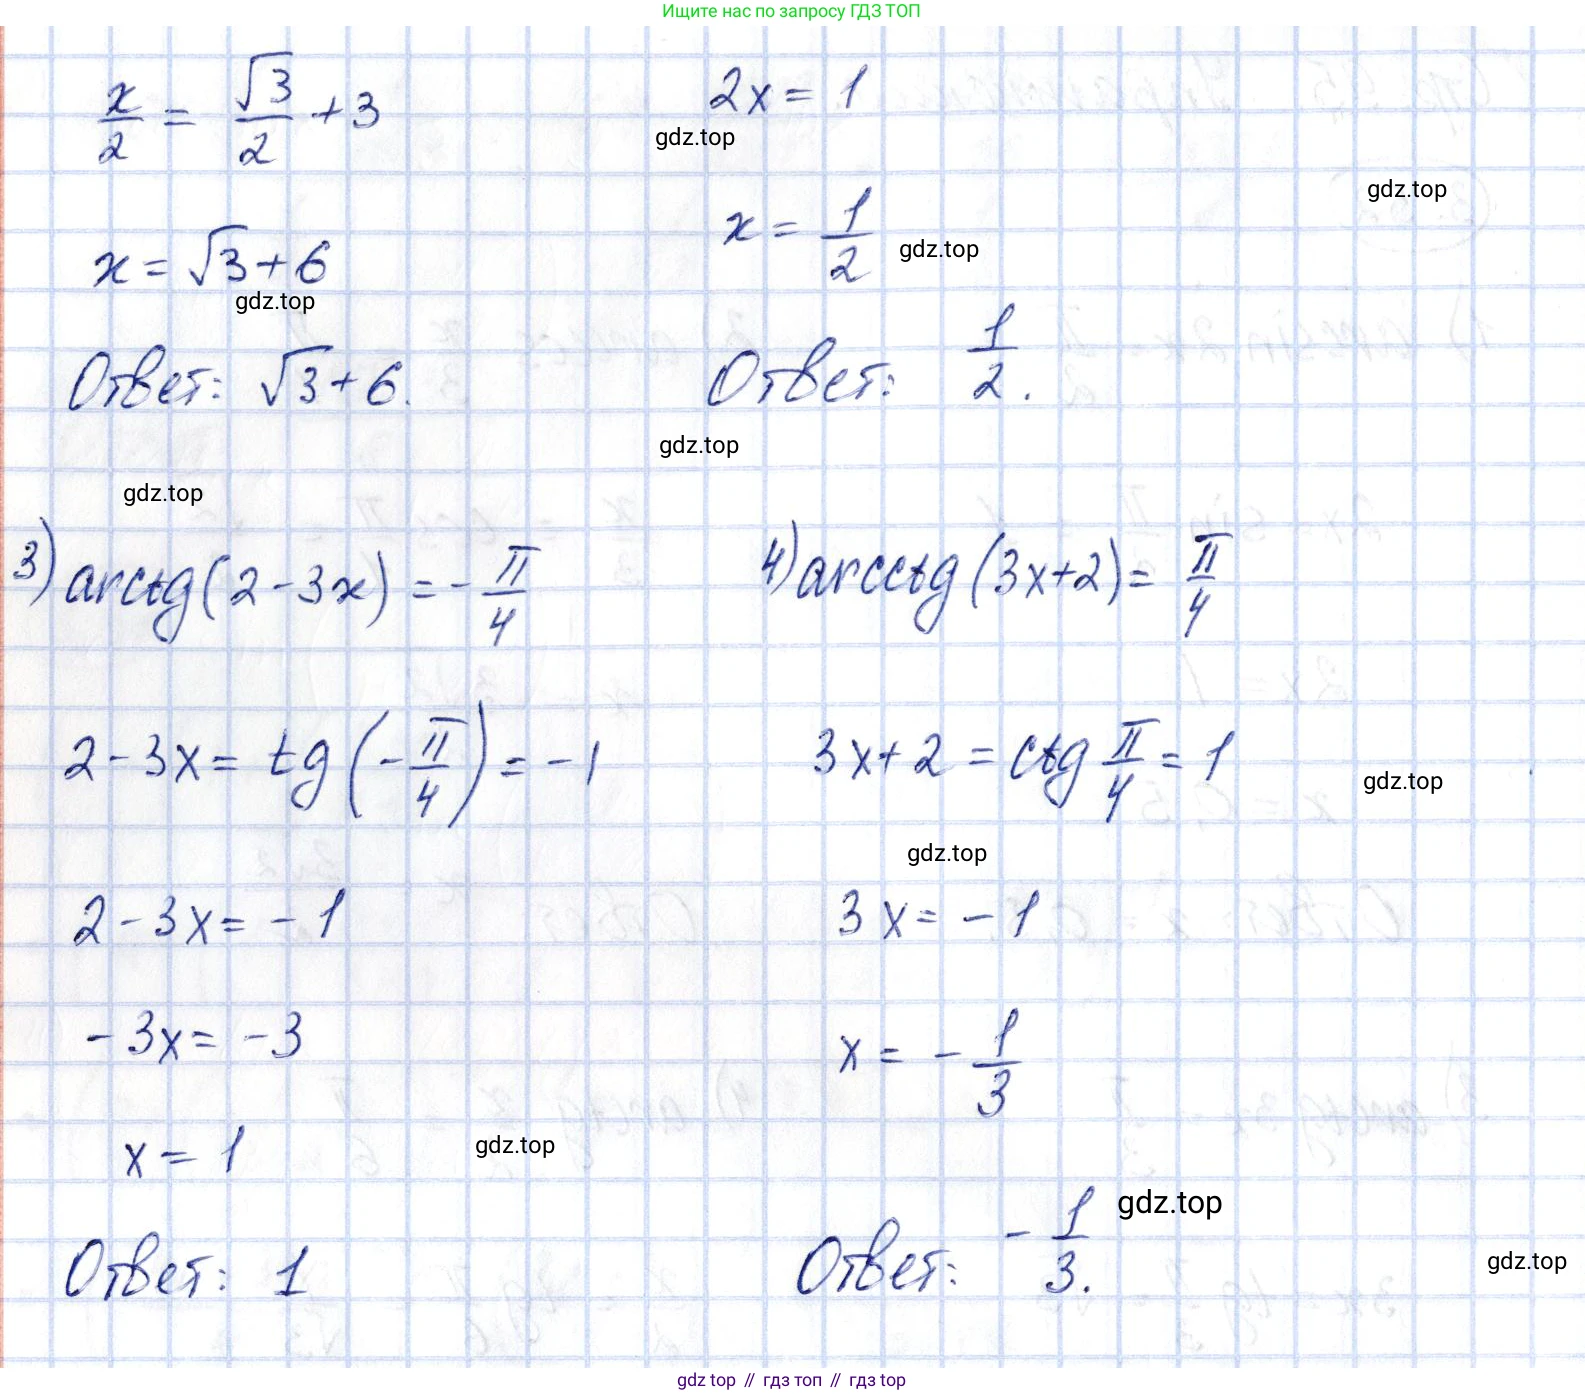 Ищите нас по запросу ГДЗ ТОП
x/2 = √3/2 + 3
x = √3 + 6
gdz.top
Ответ: √3 + 6.
gdz.top
2x = 1
gdz.top
gdz.top
x = 1/2
gdz.top
Ответ: 1/2.
gdz.top
3) arctg(2 - 3x) = - π/4
2 - 3x = tg(- π/4) = -1
2 - 3x = -1
-3x = -3
x = 1
gdz.top
Ответ: 1
4) arcctg(3x+2) = π/4
3x + 2 = ctg π/4 = 1
gdz.top
gdz.top
3x = -1
x = - 1/3
gdz.top
Ответ: - 1/3.
gdz.top
gdz top // гдз топ // gdz top